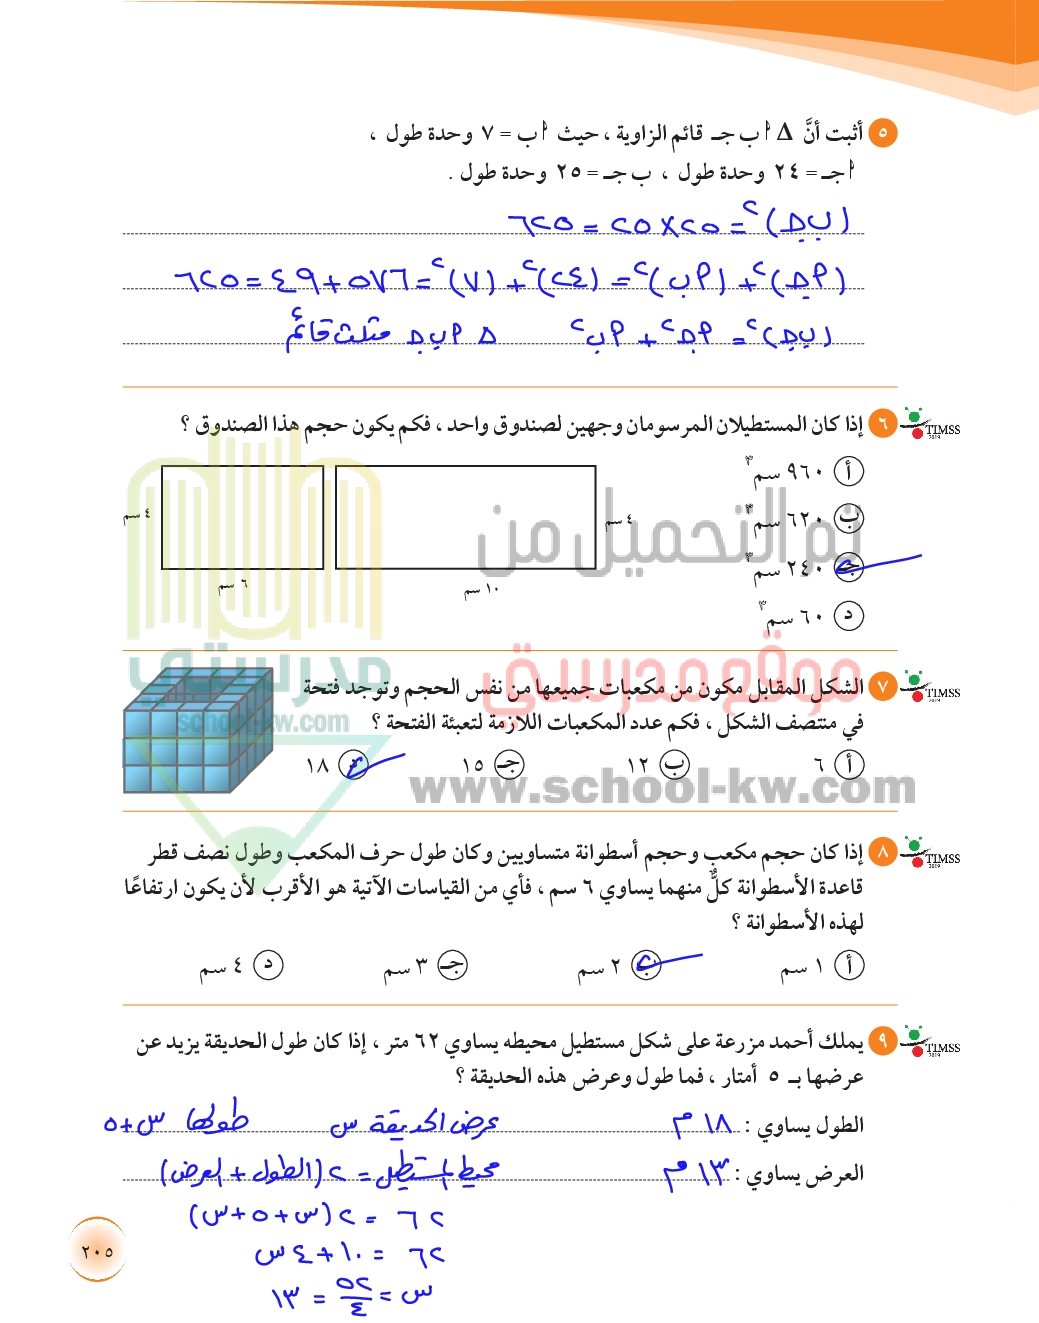 ٥ أثبت أنَّ Δ أ ب جـ قائم الزاوية ، حيث أ ب = ٧ وحدة طول ،
أ جـ = ٢٤ وحدة طول ، ب جـ = ٢٥ وحدة طول .
(ب جـ)² = ٢٥ × ٢٥ = ٦٢٥
(أ جـ)² + (أ ب)² = (٢٤)² + (٧)² = ٥٧٦ + ٤٩ = ٦٢٥
(ب جـ)² = أ جـ² + أ ب² Δ أ ب جـ مثلث قائم
٦ إذا كان المستطيلان المرسومان وجهين لصندوق واحد ، فكم يكون حجم هذا الصندوق ؟
TIMSS 2019
أ ٩٦٠ سم٣
ب ٦٢٠ سم٣
جـ ٢٤٠ سم٣
د ٦٠ سم٣
٤ سم
١٠ سم
٤ سم
٦ سم
تم التحميل من
موقع مدرستي
مدرستي
school-kw.com
www.school-kw.com
٧ الشكل المقابل مكون من مكعبات جميعها من نفس الحجم وتوجد فتحة
TIMSS 2019
في منتصف الشكل ، فكم عدد المكعبات اللازمة لتعبئة الفتحة ؟
أ ٦ ب ١٢ جـ ١٥ د ١٨
٨ إذا كان حجم مكعب وحجم أسطوانة متساويين وكان طول حرف المكعب وطول نصف قطر
TIMSS 2019
قاعدة الأسطوانة كلٌّ منهما يساوي ٦ سم ، فأي من القياسات الآتية هو الأقرب لأن يكون ارتفاعًا
لهذه الأسطوانة ؟
أ ١ سم ب ٢ سم جـ ٣ سم د ٤ سم
٩ يملك أحمد مزرعة على شكل مستطيل محيطه يساوي ٦٢ متر ، إذا كان طول الحديقة يزيد عن
TIMSS 2019
عرضها بـ ٥ أمتار ، فما طول وعرض هذه الحديقة ؟
الطول يساوي : ١٨ م عرض الحديقة س طولها س + ٥
العرض يساوي : ١٣ م محيط المستطيل = ٢ (الطول + العرض)
٦٢ = ٢ (س + ٥ + س)
٦٢ = ١٠ + ٤ س
س = ٥٢/٤ = ١٣
٢٠٥